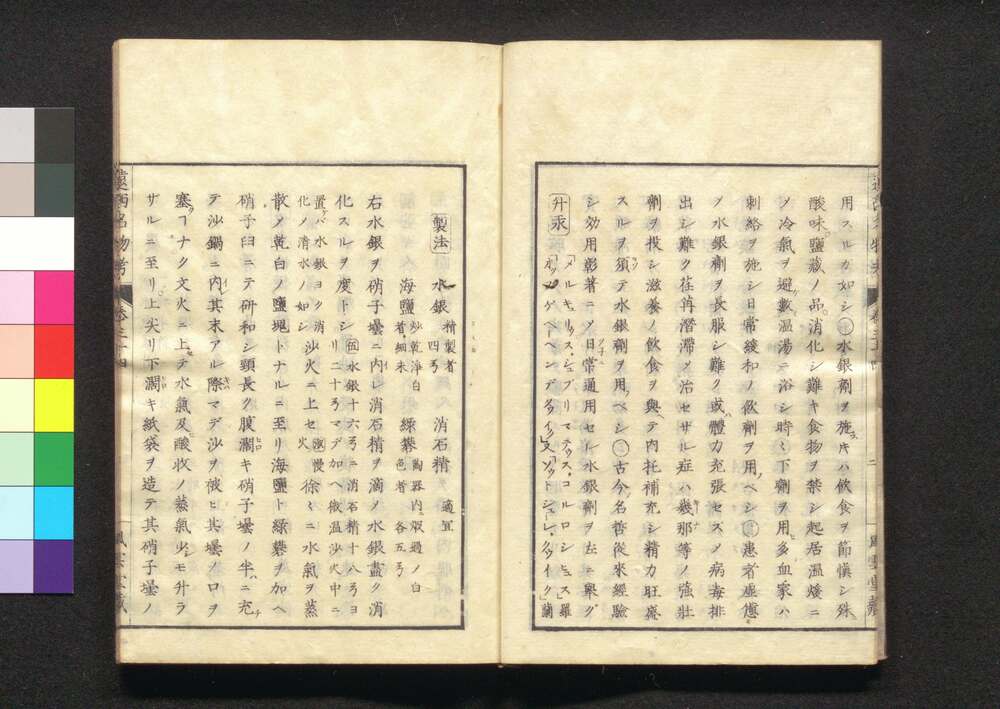 用スルガ如シ 水銀剤ヲ施スキハ飲食ヲ節慎シ殊ニ
酸味塩蔵ノ品消化シ難キ食物ヲ禁シ起居温煖ニ
ノ冷氣ヲ避數温湯ニ浴シ時々下劑ヲ用多血家ハ
刺絡ヲ施シ日常緩和ノ飲劑ヲ用ベシ 患者虚憊
ノ水銀劑ヲ長服シ難ク或ハ體力充張セズノ病毒排
出シ難ク荏苒潜滞ノ治セザル症ハ幾那等ノ強壯
劑ヲ投シ滋養ノ飲食ヲ與ヘテ内托補充シ精力旺盛
スルヲ須テ水銀劑ヲ用ベシ 古今名哲從來經驗
シ効用彰著ニノ日常通用セル水銀劑ヲ左ニ擧グ
升汞 「メルキュリュス・シュブリマテュス・コルロシヒュス」羅
製法 水銀 精製者 四弓 消石精 適宜
海鹽 炒乾浄白者細末 綠礬 陶器内ニ煆過ノ白色者 各五弓
右水銀ヲ硝子壜ニ内レ消石精ヲ滴ノ水銀盡ク消
化スルヲ度トシ 水銀十六弓ニ消石精十八弓ヨリ二十弓マデ加ヘ微温沙火中ニ
置ケバ水銀ヨク消化ノ清水ノ如シ 沙火ニ上セ 徐々ニ水氣ヲ蒸
散ノ乾白ノ鹽塊トナルニ至リ海鹽ト綠礬ヲ加ヘ
硝子臼ニテ研和シ頸長ク腹濶キ硝子壜ノ半ニ充
テ沙鍋ニ内其末アル際マデ沙ヲ彼ヒ其壜ノ口ヲ
塞ヿナク文火ニ上テ水氣及酸牧ノ蒸氣少シモ升ラ
ザルニ至リ上尖リ下濶キ紙袋ヲ造テ其硝子壜ノ